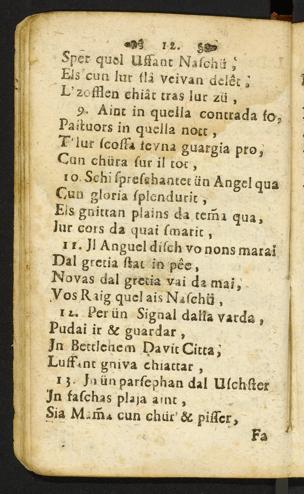 12.
Sper quel Uffant Naschü;
Els cun lur flâ veivan delêt;
L'zofflen chiât tras lur zü,
9. Aint in quella contrada fo,
Pastuors in quella nott,
T'lur scossa fevna guargia pro,
Cun chüra sur il tot,
10. Schi spreschantet ün Angel qua
Cun gloria splendurit,
Els gnittan plains da tem̃a qua,
Jur cors da quai smarit,
11. Jl Anguel disch vo nons marai
Dal gretia stat in pêe,
Novas dal gretia vai da mai,
Vos Raig quel ais Naschü,
12. Per ün Signal dalla varda,
Pudai ir & guardar,
Jn Bettlehem Davit Citta;
Luffant gniva chiattar,
13. Jn ün parsephan dal Uschster
Jn faschas plaja aint,
Sia Mam̃a cun chür' & pisser,
Fa